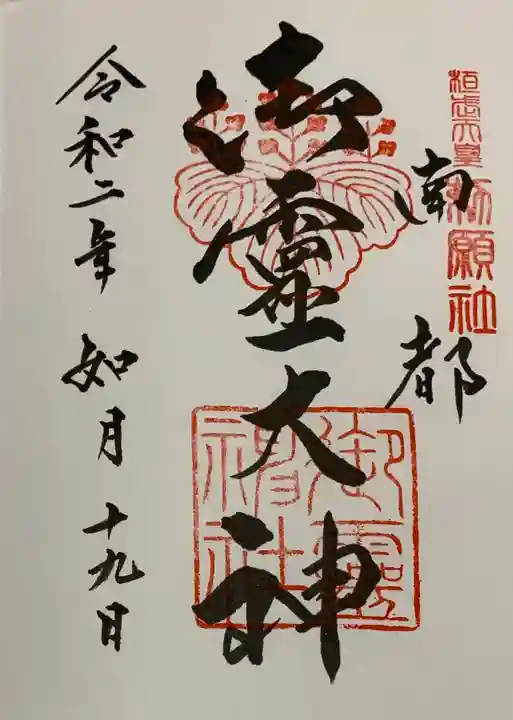 桓武天皇勅願社
南都
御霊大神
御霊神社
令和二年 如月 十九日